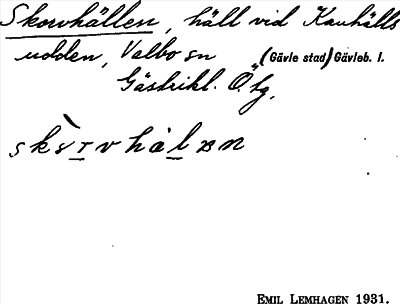 Skorvhällen, häll vid Kauhälls
udden, Valbo sn (Gävle stad) Gävleb. l.
Gästrikl. Ö. tg.
EMIL LEMHAGEN 1931.